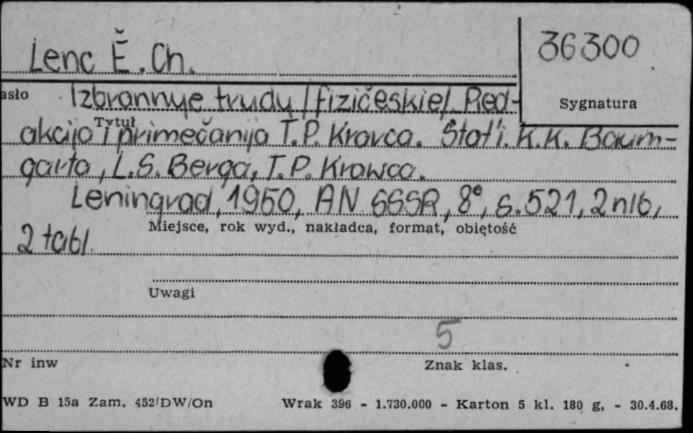 Lenc Ė. Ch.
36300
asło
Sygnatura
Izbrannye trudy /fizičeskie/. Red-
Tytuł
akcija i primečanija T.P. Kravca. Stat'i. K.K. Baum-
garta, L.S. Berga, T.P. Krawca.
Leningrad, 1950, AN SSSR, 8°, s. 521, 2 nlb,
Miejsce, rok wyd., nakładca, format, objętość
2 tabl.
Uwagi
5
Nr inw
Znak klas.
WD B 15a Zam. 452/DW/On
Wrak 396 - 1.730.000 - Karton 5 kl. 180 g, - 30.4.68.